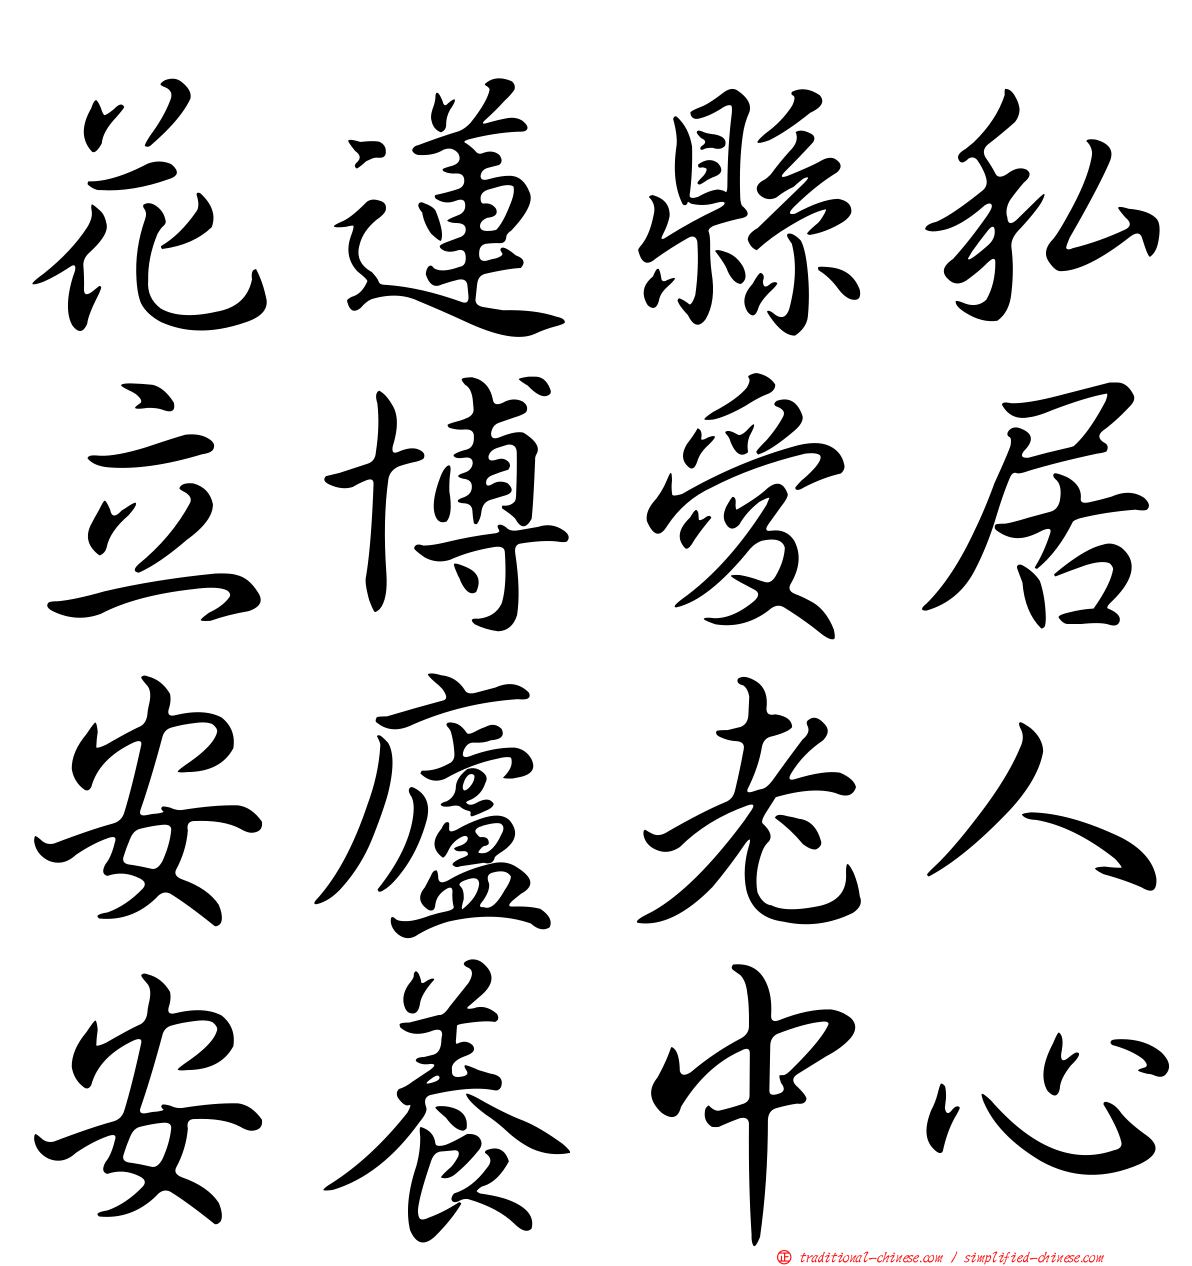 花蓮縣私
立博愛居
安廬老人
安養中心
㊣ traditional-chinese.com / simplified-chinese.com